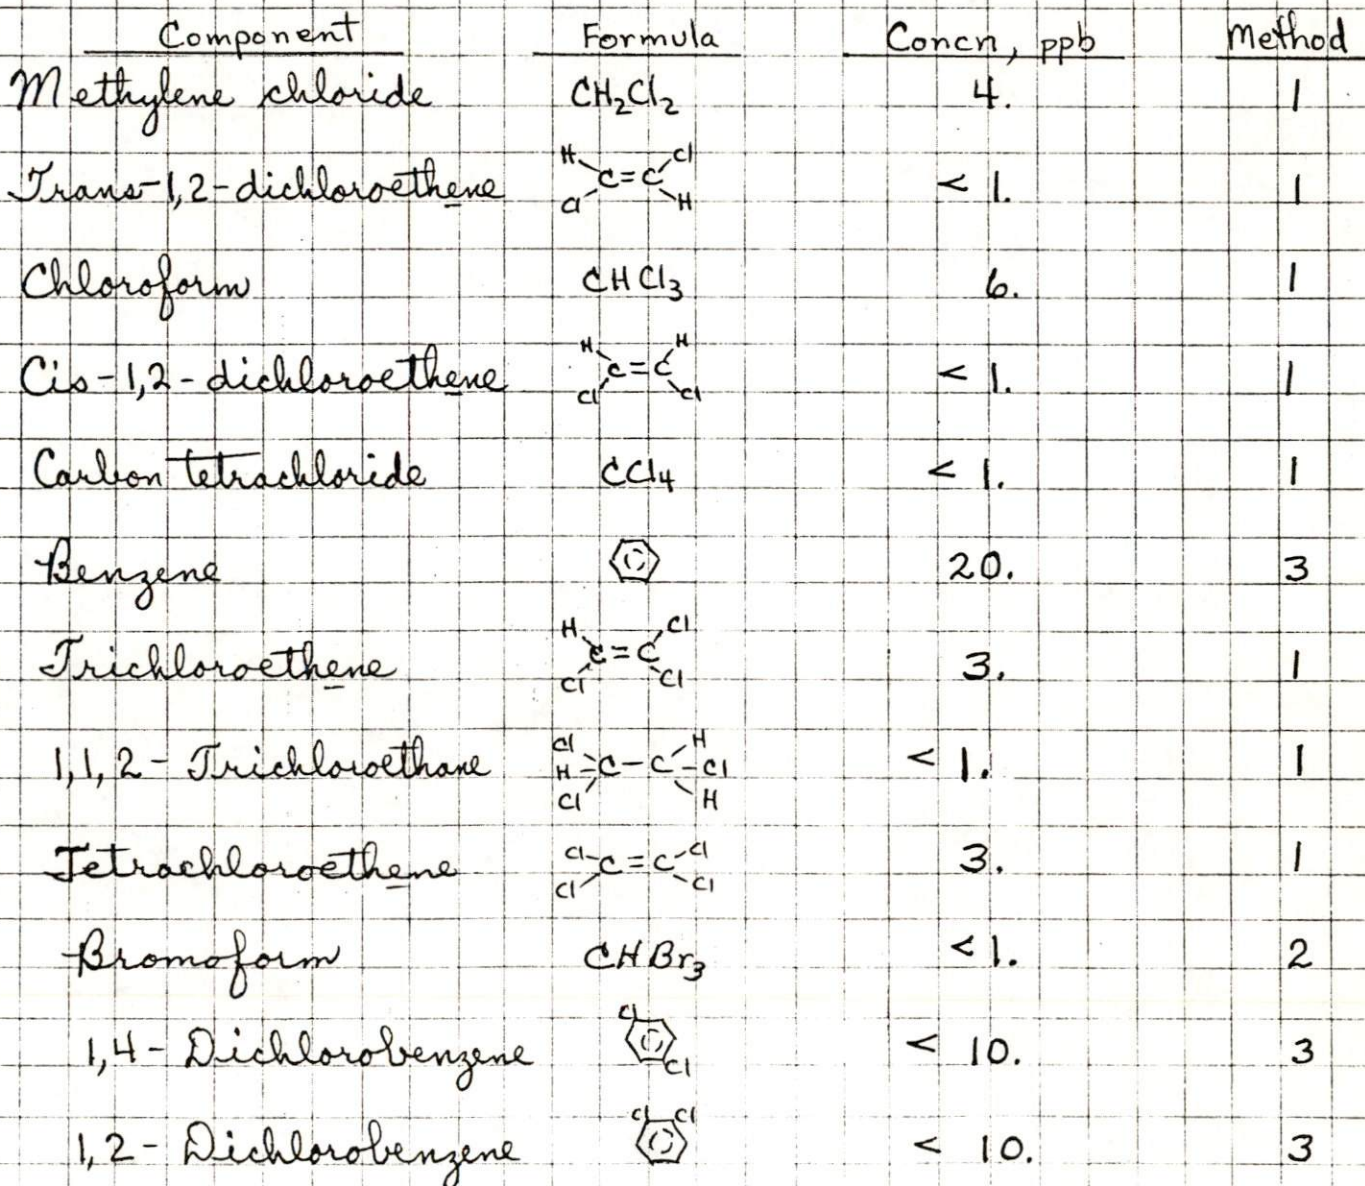 Component Formula Concn, ppb Method
Methylene chloride CH2Cl2 4. 1
Trans-1,2-dichloroethene H Cl C=C Cl H < 1. 1
Chloroform CHCl3 6. 1
Cis-1,2-dichloroethene H H C=C Cl Cl < 1. 1
Carbon tetrachloride CCl4 < 1. 1
Benzene 20. 3
Trichloroethene H Cl C=C Cl Cl 3. 1
1,1,2-Trichloroethane Cl H H-C-C-Cl Cl H < 1. 1
Tetrachloroethene Cl Cl C=C Cl Cl 3. 1
Bromoform CHBr3 <1. 2
1,4-Dichlorobenzene Cl Cl < 10. 3
1,2-Dichlorobenzene Cl Cl < 10. 3